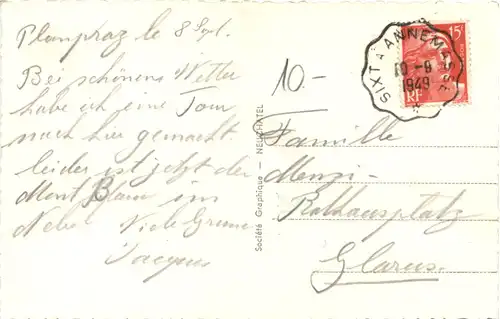 Planpraz le 8 Sept.
Bei schönem Wetter
habe ich eine Tour
nach hier gemacht
leider ist jetzt der
Mont Blanc im
Nebel Viele Grüsse
Jacques
10.-
Société Graphique — NEUCHATEL
SIXT A ANNEMASSE
10 -9
1949
15F
RF
Famille
Menzi-
Rathausplatz
Glarus.